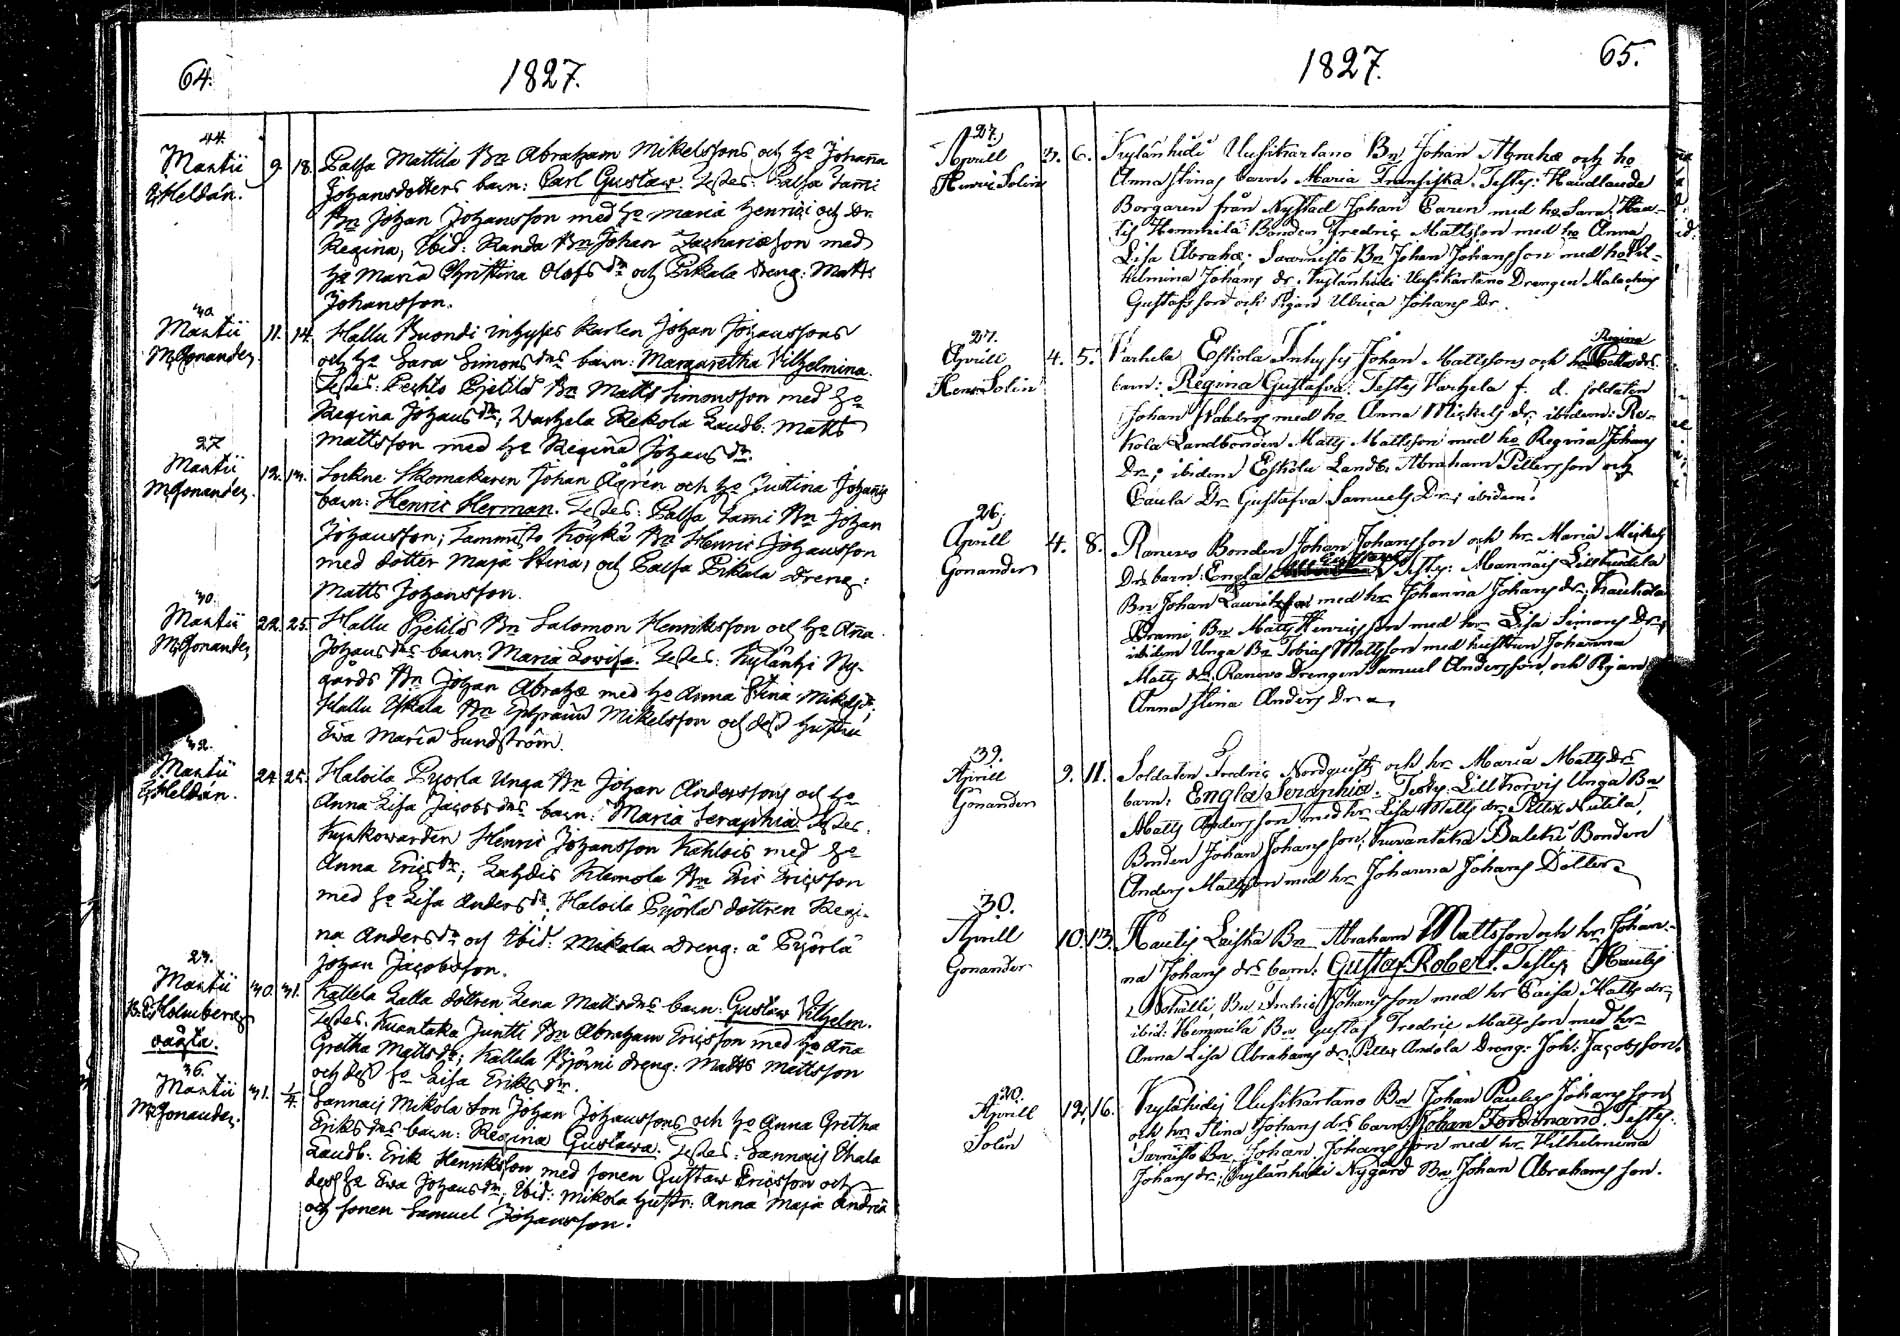 64.
1827.
44.
Martii 9. 18. Palsa Mattila Bn Abraham Mikelssons och ho Johanna
Heldán. Johansdotters barn: Carl Gustaw. Testes: Palsa Lami
Bn Johan Johansson med ho Maria Henrici och dr.
Regina, Ibid: Randa Bn Johan Zachariæson med
ho Maria Christina Olofs dr och Pikala Dreng: Matts
Johansson.
30.
Martii 11. 14. Hallu Buondi Inhyses Karlen Johan Johanssons
M. Gonander. och ho Sara Simons drs barn: Margaretha Vilhelmina.
Testes: Pjetilä Bn Matts Simonsson med ho
Regina Johans dr; Warhela Rekola Landb: Matts
Mattsson med ho Regina Johans dr.
27
Martii 12. 13. Sockne Skomakaren Johan Ågrén och ho Justina Johans
M. Gonander. barn: Henric Herman. Testes: Palsa Lami Bn Johan
Johansson; Tammisto Köykä Bn Henric Johansson
med dotter Maja Stina, och Palsa Pikala Dreng:
Matts Johansson.
30.
Martii 22. 25. Hallu Pjetilä Bn Salomon Henriksson och ho Anna
M. Gonander. Johans drs barn: Maria Lovisa. Testes: Kylänhi Ny-
gårds Bn Johan Abrahæ med ho Anna Stina Mikels dr;
Hallu Yskala Bn Ephraim Mikelsson och dess hustru
Ewa Maria Lundström.
32.
Martii 24. 25. Haloila Pyörla Unga Bn Johan Anderssons och ho
Heldán. Anna Lisa Jacobs drs barn: Maria Seraphia. Testes:
Kyrkowarden Henric Johansson Kahlois med ho
Anna Erics dr; Lahdis Klemola Bn Eric Ericsson
med ho Lisa Anders dr; Haloila Pyörlä dottren Regi-
na Anders dr och Ibid: Mikola Dreng: å Pyörlä
Johan Jacobsson.
23.
Martii 30. 31. Kallela Lalla dottren Lena Matts drs barn: Gustaw Vilhelm.
Holmberg Testes: Kuantaka Juntti Bn Abraham Ericsson med ho Anna
oäkta. Gretha Matts dr; Kallela Björni Dreng: Matts Mattsson
och dess ho Lisa Eriks dr.
36.
Martii 31. 1/4. Sannais Mikola Son Johan Johanssons och ho Anna Gretha
M. Gonander. Eriks drs barn: Regina Gustawa. Testes: Sannais Uhala
Landb: Erik Henriksson med Sonen Gustaw Ericsson och
dess ho Ewa Johans dr; Ibid: Mikola Hustr: Anna Maja Andræ
och sonen Samuel Johansson.
65.
1827.
27.
Aprill 3. 6. Kylänhidi Uusikartano Bn Johan Abrahæ och ho
Henric Solin Anna Stinas barn. Maria Fransiska. Testes: Handlande
Borgaren från Nystad Johan Caren med ho Sara; Hau-
tis Hemmilä Bonden Fredric Mattsson med ho Anna
Lisa Abrahæ. Sarmisto Bn Johan Johansson med ho Vil-
helmina Johans dr. Kylänhidi Uusikartano Drengen Malachias
Gustafsson och Pigan Ulrica Johans Dr.
27.
Aprill 4. 5. Varhela Eskola Inhyses Johan Mattssons och ho Regina drs
Henr. Solin barn: Regina Gustafva. Testes Varhela f. d. soldaten
Johan Wahlros med ho Anna Mickels dr. ibidem: Re-
kola Landbonden Matts Mattsson med ho Regina Johans
Dr; ibidem Eskola Landb. Abraham Pettersson och
Caula Dr Gustafva Samuels Dr; ibidem.
26.
Aprill 4. 8. Ranevo Bonden Johan Johansson och hr Maria Mickels
Gonander Drs barn: Engla Testes: Mannäis Lillkudila
Bn Johan Lauritsson med hr Johanna Johans dr; Kauhola
Prami Bn Matts Henricsson med hr Lisa Simons Dr;
ibidem Unga Bn Tobias Mattsson med hustrun Johanna
Matts dr; Ranevo Drengen Samuel Andersson, och Pigan
Anna Stina Anders Dr.
39.
Aprill 9. 11. Soldaten Fredric Nordquists och hr Maria Matts drs
Gonander barn: Engla Seraphia. Testes: Lillkorvis Unga Bn
Matts Andersson med hr Lisa Matts dr, Pillix Nutila
Bonden Johan Johansson; Kuvantaka Paleki Bonden
Anders Mattsson med hr Johanna Johans Dotter
30.
Aprill 10. 13. Hautis Leiska Bn Abraham Mattsson och hr Johan-
Gonander na Johans drs barn: Gustaf Robert. Testes: Hautis
Bn Fredric Johansson med hr Caisa Matts dr;
ibid: Hemmilä Bn Gustaf Fredric Mattsson med hr
Anna Lisa Abrahams dr, Pillex Andola Dreng: Joh: Jacobsson.
20.
Aprill 12. 16. Kylähidis Uusikartano Bn Johan Paulus Johansson
Solin och hr Stina Johans drs barn: Johan Ferdinand. Testes:
Sarmisto Bn Johan Johansson med hr Vilhelmina
Johans dr; Kylänhidi Nygård Bn Johan Abrahamsson.